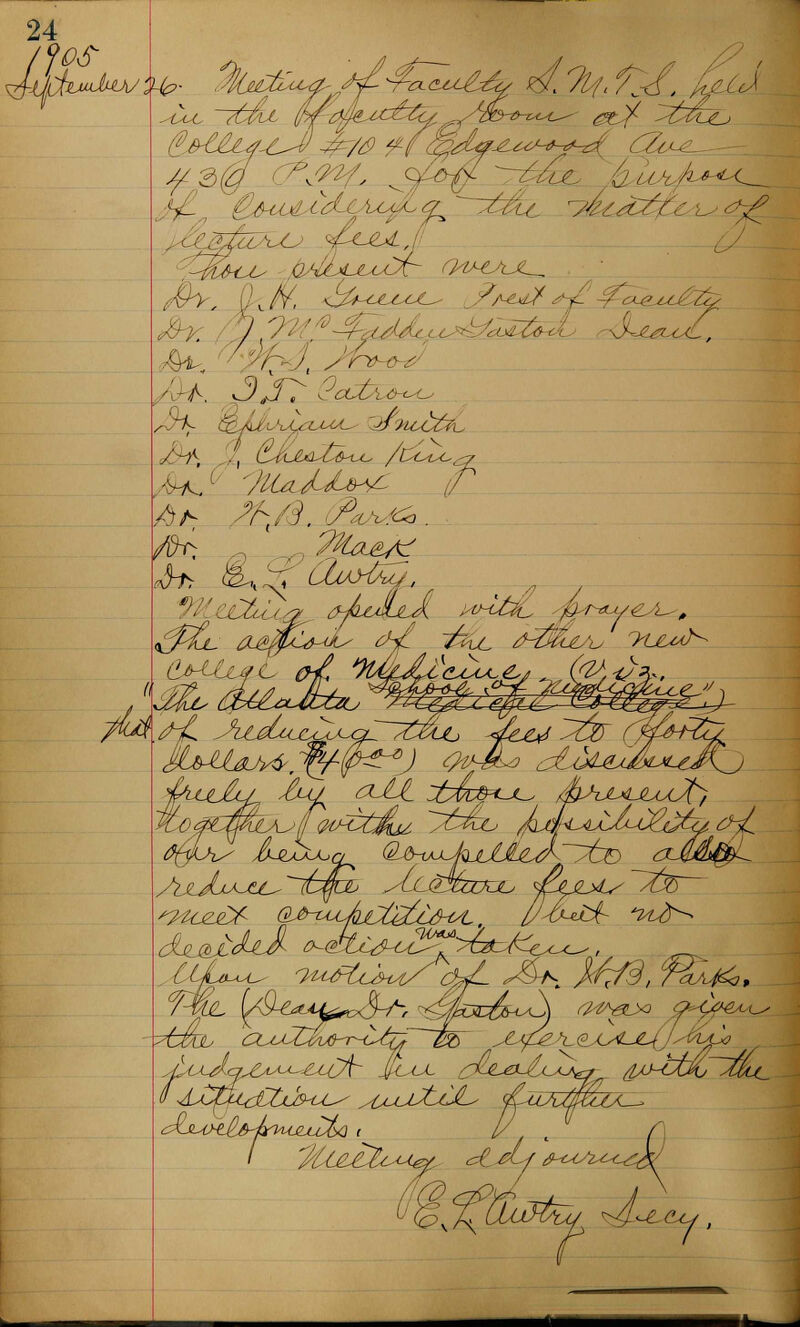 24
1905
September 26. Meeting of Faculty S.M.T.S. held
in the Faculty Room at the
College #104 Edgewood Ave
4 3@ P.M. for the purpose
of Considering the matter of
lecture fees.
Those present were
Dr. J.H. Greene Prest of Faculty
Dr. J. McFadden Gaston Dean,
Dr. W.S.
Dr. Catron
Dr. Ephriam Smith
Dr. J. Cheston King
Dr. Maddox
Dr. W.B. Parks.
Dr. Mack
Dr. E.L. Awtry,
Meeting opened with prayer.
The action of the other new
College of Medicine, (Viz.,
"The Atlanta School of Medicine" Medical College")
that of reducing the fees to (forty
dollars. $40.00) was discussed
freely by all those present,
together with the possibility of
our being Compelled to also
reduce the lecture fees to
meet competition, but no
decided action was taken.
Upon motion of Dr. W.B. Parks.
The (Dean Dr. Gaston) was given
the authority to exercise his
judgement in dealing with the
situation until further
developments.
Meeting adjourned
E.L. Awtry Secy.